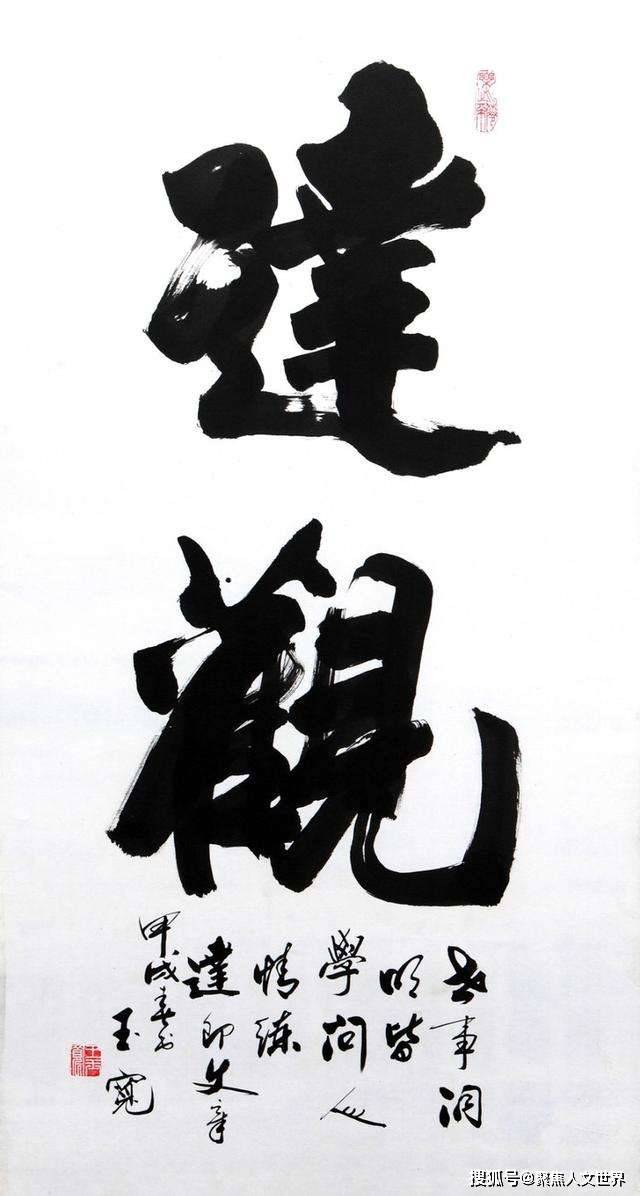 達
觀
世事洞
明皆
學問人
情練
達即文章
甲戌春
玉寬
搜狐号@聚焦人文世界